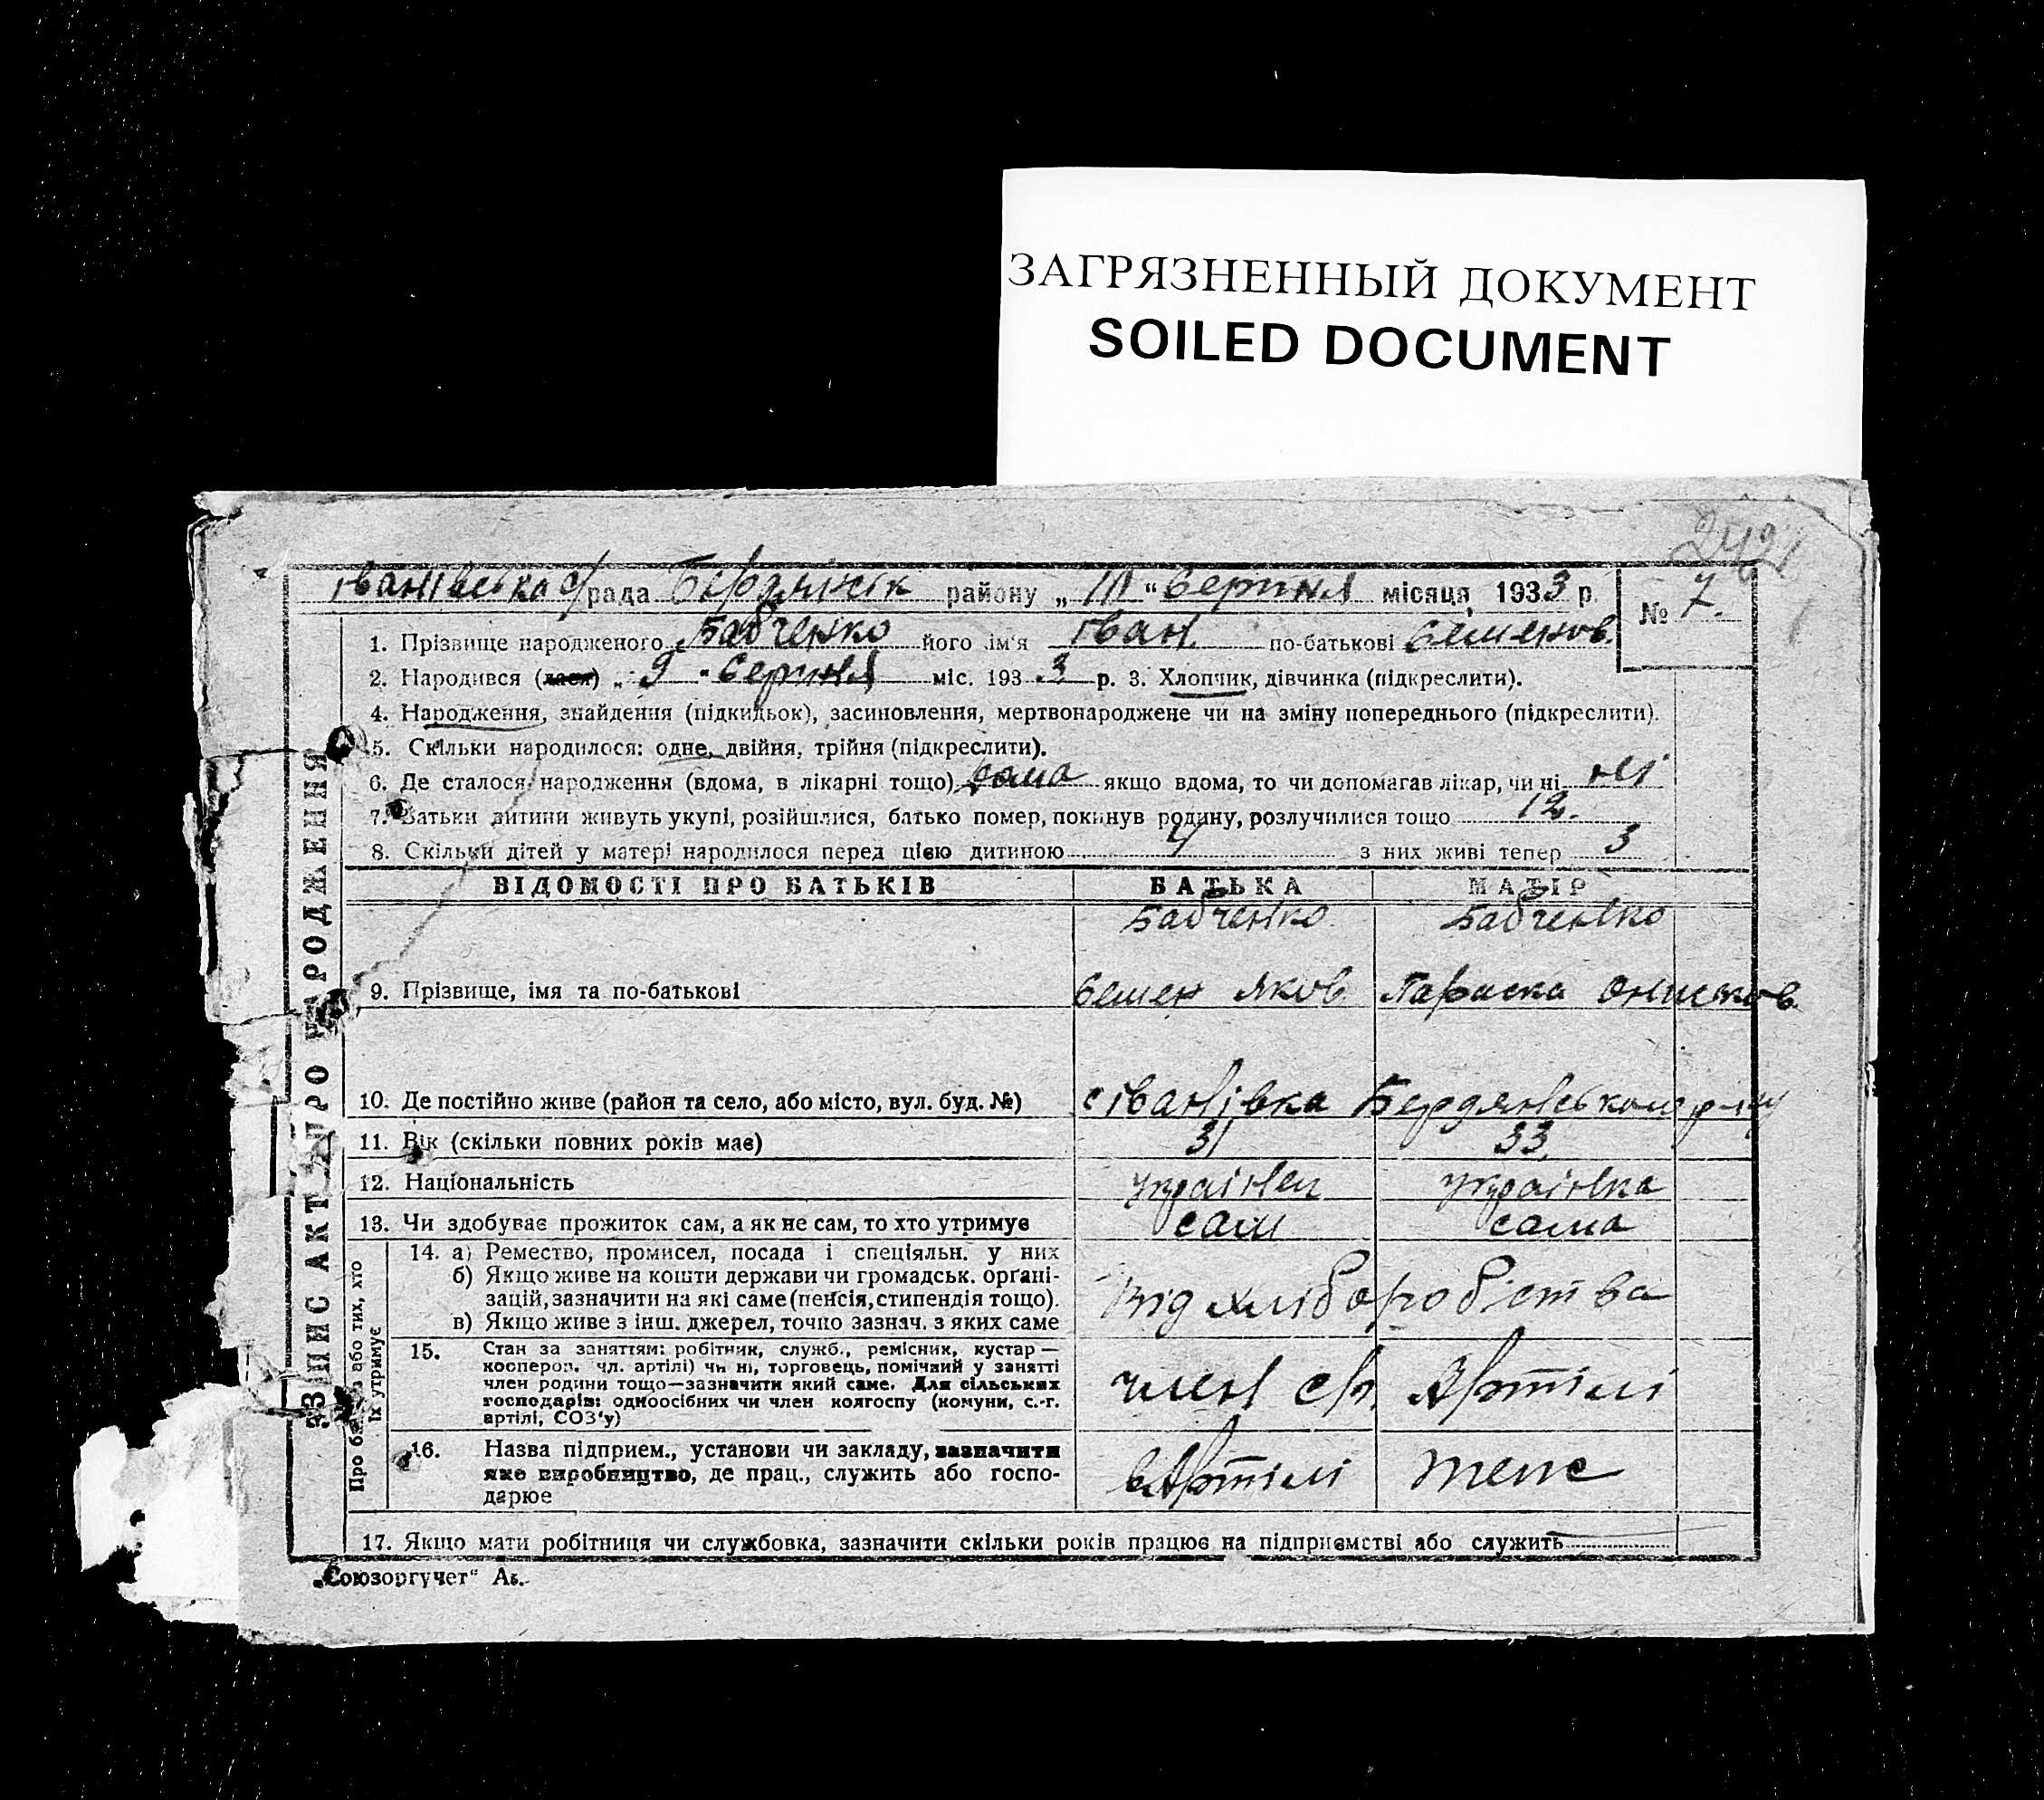 ЗАГРЯЗНЕННЫЙ ДОКУМЕНТ
SOILED DOCUMENT
Іванівська с/рада Бердянськ району „ 10 “ Серпня місяця 1933 р. № 7.
1. Прізвище народженого Бабченко його ім'я Іван по-батькові Семенов.
2. Народився (лася) „ 9 " Серпня міс. 193 3 р. 3. Хлопчик, дівчинка (підкреслити).
4. Народження, знайдення (підкидьок), засиновлення, мертвонароджене чи на зміну попереднього (підкреслити).
5. Скільки народилося: одне, двійня, трійня (підкреслити).
6. Де сталося народження (вдома, в лікарні тощо) Дома якщо вдома, то чи допомагав лікар, чи ні ні
7. Батьки дитини живуть укупі, розійшлися, батько помер, покинув родину, розлучилися тощо 12.
8. Скільки дітей у матері народилося перед цією дитиною 4 з них живі тепер 3
ЗАПИС АКТ ПРО НАРОДЖЕННЯ
ВІДОМОСТІ ПРО БАТЬКІВ БАТЬКА МАТІР
Бабченко Бабченко
9. Прізвище, імя та по-батькові Семен Яков Параска Онисков.
10. Де постійно живе (район та село, або місто, вул. буд. №) с Іванівка Бердянського р-ну
11. Вік (скільки повних років має) 31 33
12. Національність українец українка
13. Чи здобуває прожиток сам, а як не сам, то хто утримує сам сама
Про батька або тих, хто їх утримує
14. а) Ремество, промисел, посада і спеціяльн. у них
б) Якщо живе на кошти держави чи громадськ. орґані-
зацій, зазначити на які саме (пенсія, стипендія тощо).
в) Якщо живе з інш. джерел, точно зазнач. з яких саме
Від хліборобства
15. Стан за заняттям: робітник, служб., ремісник, кустар —
коопероп. чл. артілі) чи ні, торговець, помічний у занятті
член родини тощо—зазначити який саме. Для сільських
господарів: одноосібних чи член колгоспу (комуни, с.-г.
артілі, СОЗ'у)
член с/г Артілі
16. Назва підприєм., установи чи закладу, зазначити
яке виробництво, де прац., служить або госпо-
дарює
в Артілі теж
17. Якщо мати робітниця чи службовка, зазначити скільки років працює на підприємстві або служить
„Союзоргучет"